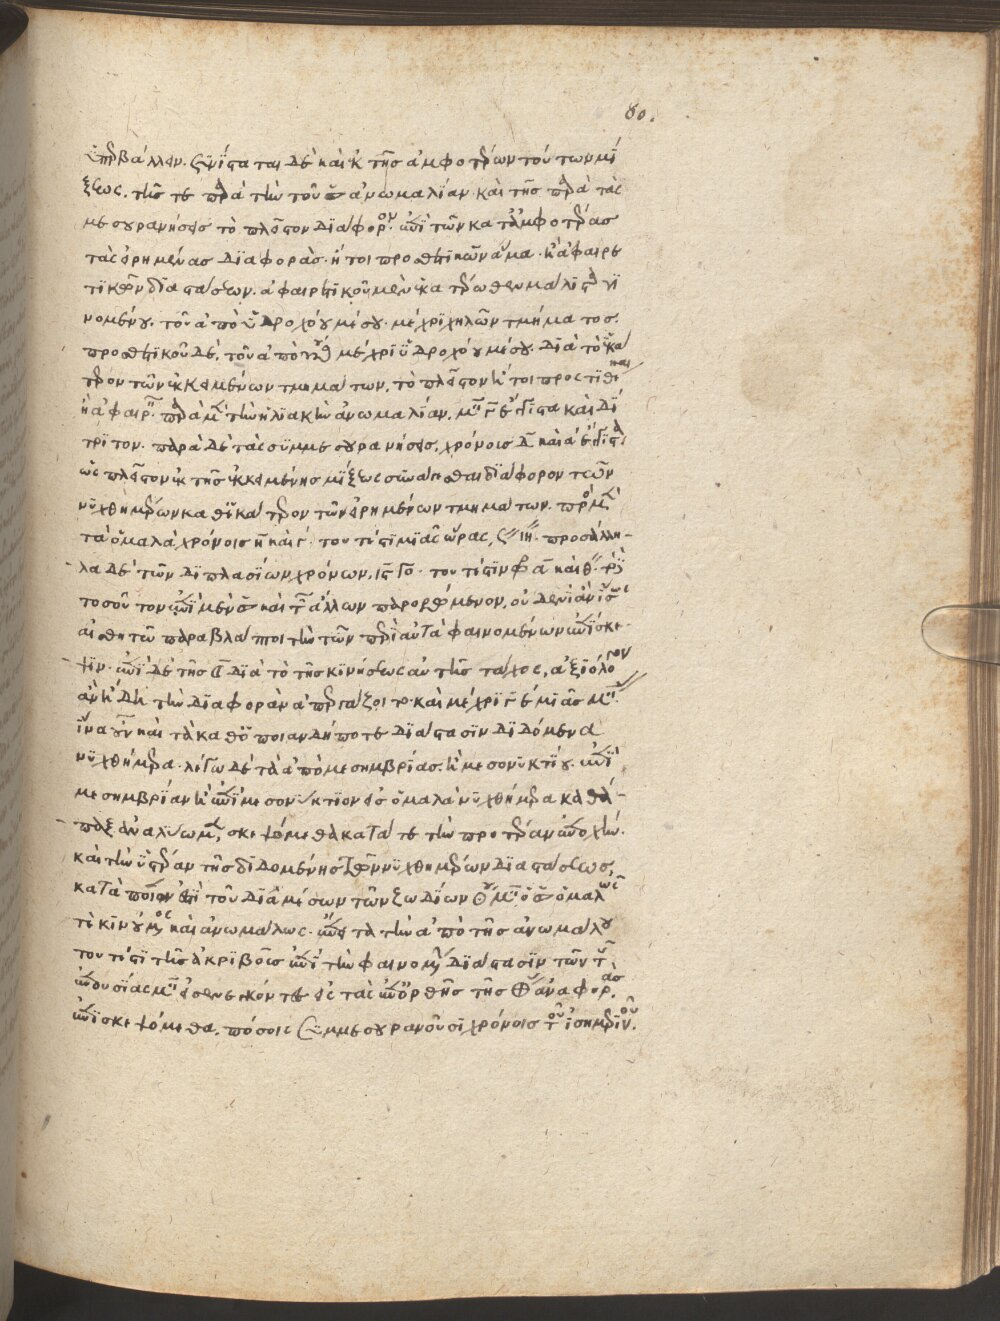 80.
ὑπερβάλλειν. συνίσταται δὲ καὶ ἐκ τῆς ἀμφοτέρων τούτων μί
ξεως. τῆς τε παρὰ τὴν τοῦ ☉ ἀνωμαλίαν. καὶ τῆς παρὰ τὰς
μεσουρανήσεις τὸ πλεῖστον διάφορον. ἐπὶ τῶν κατ' ἀμφοτέρας
τὰς εἰρημένας διαφοράς. ἤτοι προσθετικῶν ἅμα. ἢ ἀφαιρε
τικῶν διαστάσεων. ἀφαιρετικοῦ μὲν ἑκατέρωθεν μάλιστα γι
νομένου. τοῦ ἀπὸ ὑδροχόου μέσου. μέχρι χηλῶν τμήματος.
προσθετικοῦ δὲ, τοῦ ἀπὸ μέχρι ὑδροχόου μέσου. διὰ τὸ ἑκά
τερον τῶν ἐκκειμένων τμημάτων, τὸ πλεῖστον ἤτοι προστιθέναι
ἢ ἀφαιρεῖν. παρὰ μὲν τὴν ἡλιακὴν ἀνωμαλίαν, μοί γ̄ ἔγγιστα καὶ δί
τριτον. παρὰ δὲ τὰς συμμεσουρανήσεις, χρόνοις δ̄ καὶ ἔγγιστα
ὡς πλεῖστον ἐκ τῆς ἐκκειμένης μίξεως συνάγεσθαι διάφορον τῶν
νυχθημέρων καθ' ἑκάτερον τῶν εἰρημένων τμημάτων. πρὸς μὲν
τὰ ὁμαλὰ χρόνοις η̄ καὶ γ΄. τουτέστι μιᾶς ὥρας, . πρὸς ἄλλη-
λα δὲ τῶν διπλασίων χρόνων, . τουτέστιν α καὶ θ΄΄.
τοσοῦτον ἐπὶ μὲν ☉ καὶ τῶν ἄλλων παρορώμενον, οὐδενὶ ἂν ἴσως
αἰσθητῷ παραβλάπτοι τὴν τῶν περὶ αὐτὰ φαινομένων ἐπίσκε-
ψιν. ἐπὶ δὲ τῆς ☾ διὰ τὸ τῆς κινήσεως αὐτῆς τάχος, ἀξιόλογον
ἂν ἤδη τὴν διαφορὰν ἀπεργάζοιτο. καὶ μέχρι γ̄ ε μιᾶς μοί.
ἵνα οὖν καὶ τὰ καθ' ὁποιανδήποτε διάστασιν διδόμενα
νυχθήμερα. λέγω δὲ τὰ ἀπὸ μεσημβρίας. ἢ μεσονυκτίου. ἐπὶ
μεσημβρίαν ἢ ἐπὶ μεσονύκτιον εἰς ὁμαλὰ νυχθήμερα καθά-
παξ ἀναλύωμεν, σκεψόμεθα κατά τε τὴν προτέραν ἐποχὴν.
καὶ τὴν ὑστέραν τῆς διδομένης τῶν νυχθημέρων διαστάσεως,
κατὰ ποίαν ἐστὶ τοῦ διὰ μέσων τῶν ζωδίων μοί. ὁ ☉ ὁμαλῶς
τε κινούμενος καὶ ἀνωμάλως. ἔπειτα τὴν ἀπὸ τῆς ἀνωμάλου
τουτέστι τῆς ἀκριβοῦς ἐπὶ τὴν φαινομένην διάστασιν τῶν τῆς
ἐπουσίας μοί εἰσενεγκόντες εἰς τὰς ἐπ' ὀρθῆς τῆς ἀναφοράς,
ἐπισκεψόμεθα. πόσοις συμμεσουρανοῦσι χρόνοις τοῦ ἰσημερινοῦ.